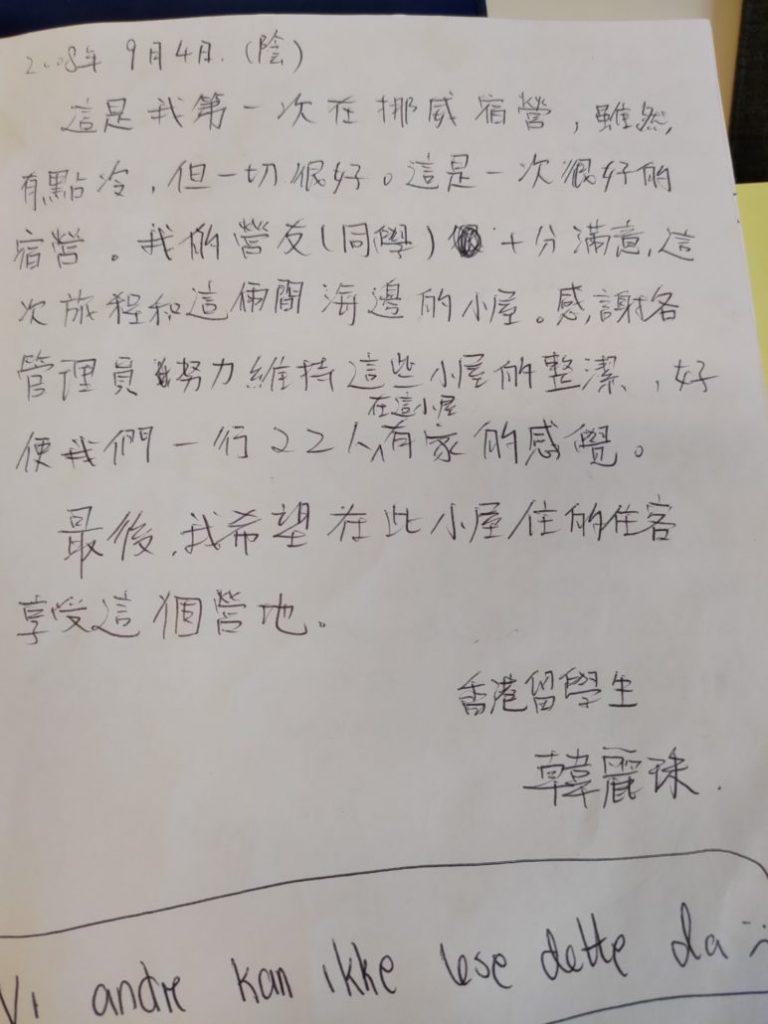 2008年 9月4日. (陰)
這是我第一次在挪威宿營，雖然
有點冷，但一切很好。這是一次很好的
宿營。我的營友(同學) 十分滿意，這
次旅程和這倆間海邊的小屋。感謝各
管理員努力維持這些小屋的整潔，好
在這小屋
使我們一行22人有家的感覺。
最後，我希望在此小屋住的住客
享受這個營地。
香港留學生
韓麗珠.
Vi andre kan ikke lese dette da :)